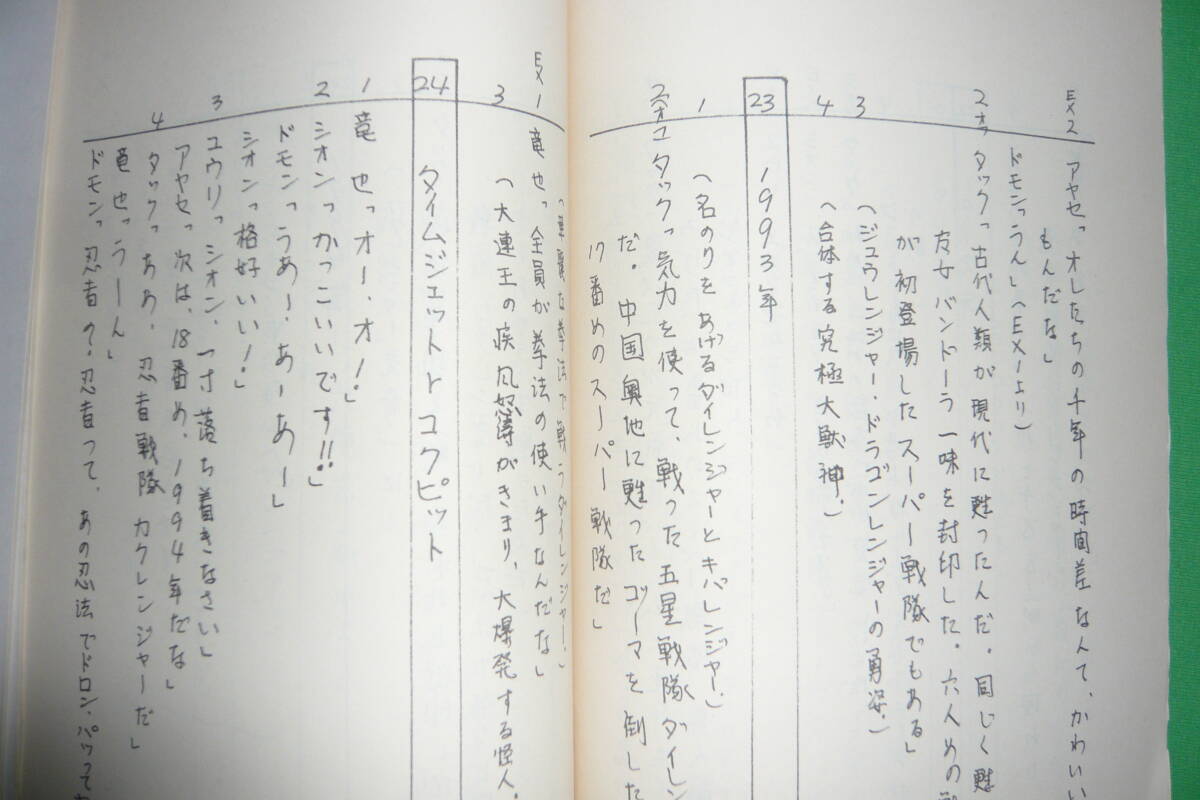 EX2 アヤセっオレたちの千年の時間差なんて、かわいい
もんだな」
ドモンっうん」(EX1より)
2 タックっ古代人類が現代に甦ったんだ。同じく甦
女バンドーラ一味を封印した。六人めの戦
が初登場したスーパー戦隊でもある」
3 (ジュウレンジャー・ドラゴンレンジャーの勇姿。)
4 (合体する究極大獣神。)
23 1993年
1 (名のりをあげるダイレンジャーとキバレンジャー。)
2 タックっ気力を使って、戦った五星戦隊ダイレン
だ。中国奥地に甦ったゴーマを倒した
17番めのスーパー戦隊だ」
な拳法で戦うダイレンジャー。)
EX1 竜也っ全員が拳法の使い手なんだな」
3 (大連王の疾風怒濤がきまり、大爆発する怪人。
24 タイムジェット1コクピット
1 竜也っオー・オ!」
2 シオンっかっこいいです!!」
ドモンっうあー・あーあー」
シオンっ格好いい!」
3 ユウリっシオン、一寸落ち着きなさい」
アヤセっ次は、18番め、1994年だな」
4 タックっああ、忍者戦隊カクレンジャーだ」
竜也っうーん」
ドモンっ忍者?・忍者って、あの忍法でドロン・パッって